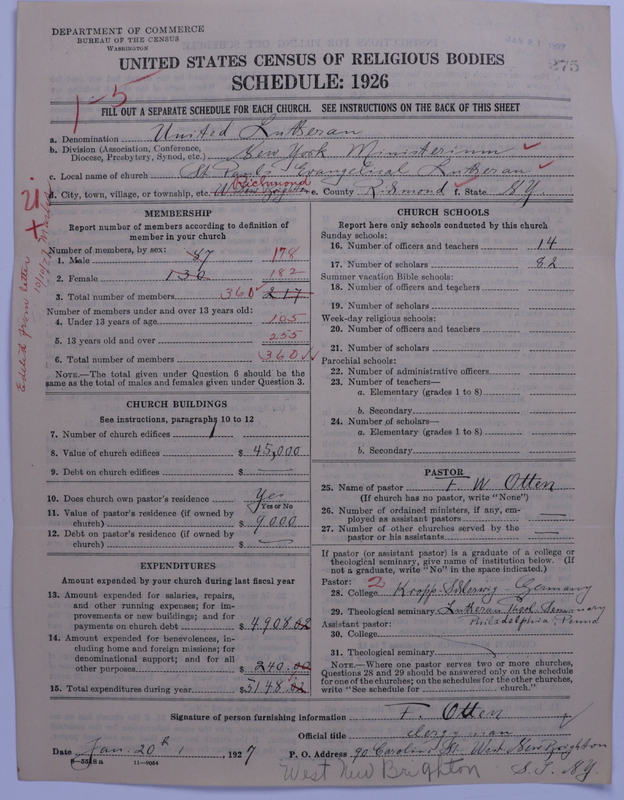 DEPARTMENT OF COMMERCE
BUREAU OF THE CENSUS
WASHINGTON
UNITED STATES CENSUS OF RELIGIOUS BODIES
SCHEDULE: 1926
275
1-5
FILL OUT A SEPARATE SCHEDULE FOR EACH CHURCH. SEE INSTRUCTIONS ON THE BACK OF THIS SHEET
a. Denomination United Lutheran
b. Division (Association, Conference, Diocese, Presbytery, Synod, etc.) New York Ministerium
c. Local name of church St Pauls Evangelical Lutheran
d. City, town, village, or township, etc. W. New Brighton Richmond e. County Richmond f. State N.Y.
Edited from letter
MEMBERSHIP
Report number of members according to definition of
member in your church
Number of members, by sex:
1. Male 87 178
2. Female 130 182
3. Total number of members 360 217
Number of members under and over 13 years old:
4. Under 13 years of age 105
5. 13 years old and over 255
6. Total number of members 360
NOTE.—The total given under Question 6 should be the
same as the total of males and females given under Question 3.
CHURCH BUILDINGS
See instructions, paragraphs 10 to 12
7. Number of church edifices 1
8. Value of church edifices $ 45,000
9. Debt on church edifices $ —
10. Does church own pastor's residence Yes
Yes or No
11. Value of pastor's residence (if owned by
church) $ 9000
12. Debt on pastor's residence (if owned by
church) $ —
EXPENDITURES
Amount expended by your church during last fiscal year
13. Amount expended for salaries, repairs,
and other running expenses; for im-
provements or new buildings; and for
payments on church debt $ 4908.02
14. Amount expended for benevolences, in-
cluding home and foreign missions; for
denominational support; and for all
other purposes $ 240.00
15. Total expenditures during year $ 5148.02
CHURCH SCHOOLS
Report here only schools conducted by this church
Sunday schools:
16. Number of officers and teachers 14
17. Number of scholars 82
Summer vacation Bible schools:
18. Number of officers and teachers
19. Number of scholars
Week-day religious schools:
20. Number of officers and teachers
21. Number of scholars
Parochial schools:
22. Number of administrative officers
23. Number of teachers—
a. Elementary (grades 1 to 8)
b. Secondary
24. Number of scholars—
a. Elementary (grades 1 to 8)
b. Secondary
PASTOR
25. Name of pastor F. W. Otten
(If church has no pastor, write "None")
26. Number of ordained ministers, if any, em-
ployed as assistant pastors —
27. Number of other churches served by the
pastor or his assistants —
If pastor (or assistant pastor) is a graduate of a college or
theological seminary, give name of institution below. (If
not a graduate, write "No" in the space indicated.)
Pastor: 2
28. College Kropp-Schleswig-Germany
29. Theological seminary Lutheran Theol. Seminary
Philadelphia, Penna
Assistant pastor:
30. College
31. Theological seminary
NOTE.—Where one pastor serves two or more churches,
Questions 28 and 29 should be answered only on the schedule
for one of the churches; on the schedules for the other churches,
write "See schedule for church."
Signature of person furnishing information F. Otten
Official title clergyman
Date Jan. 20th, 1927 P. O. Address 90 Caroline St. West New Brighton
8—5518a 11—9054
West New Brighton S. I. N.Y.